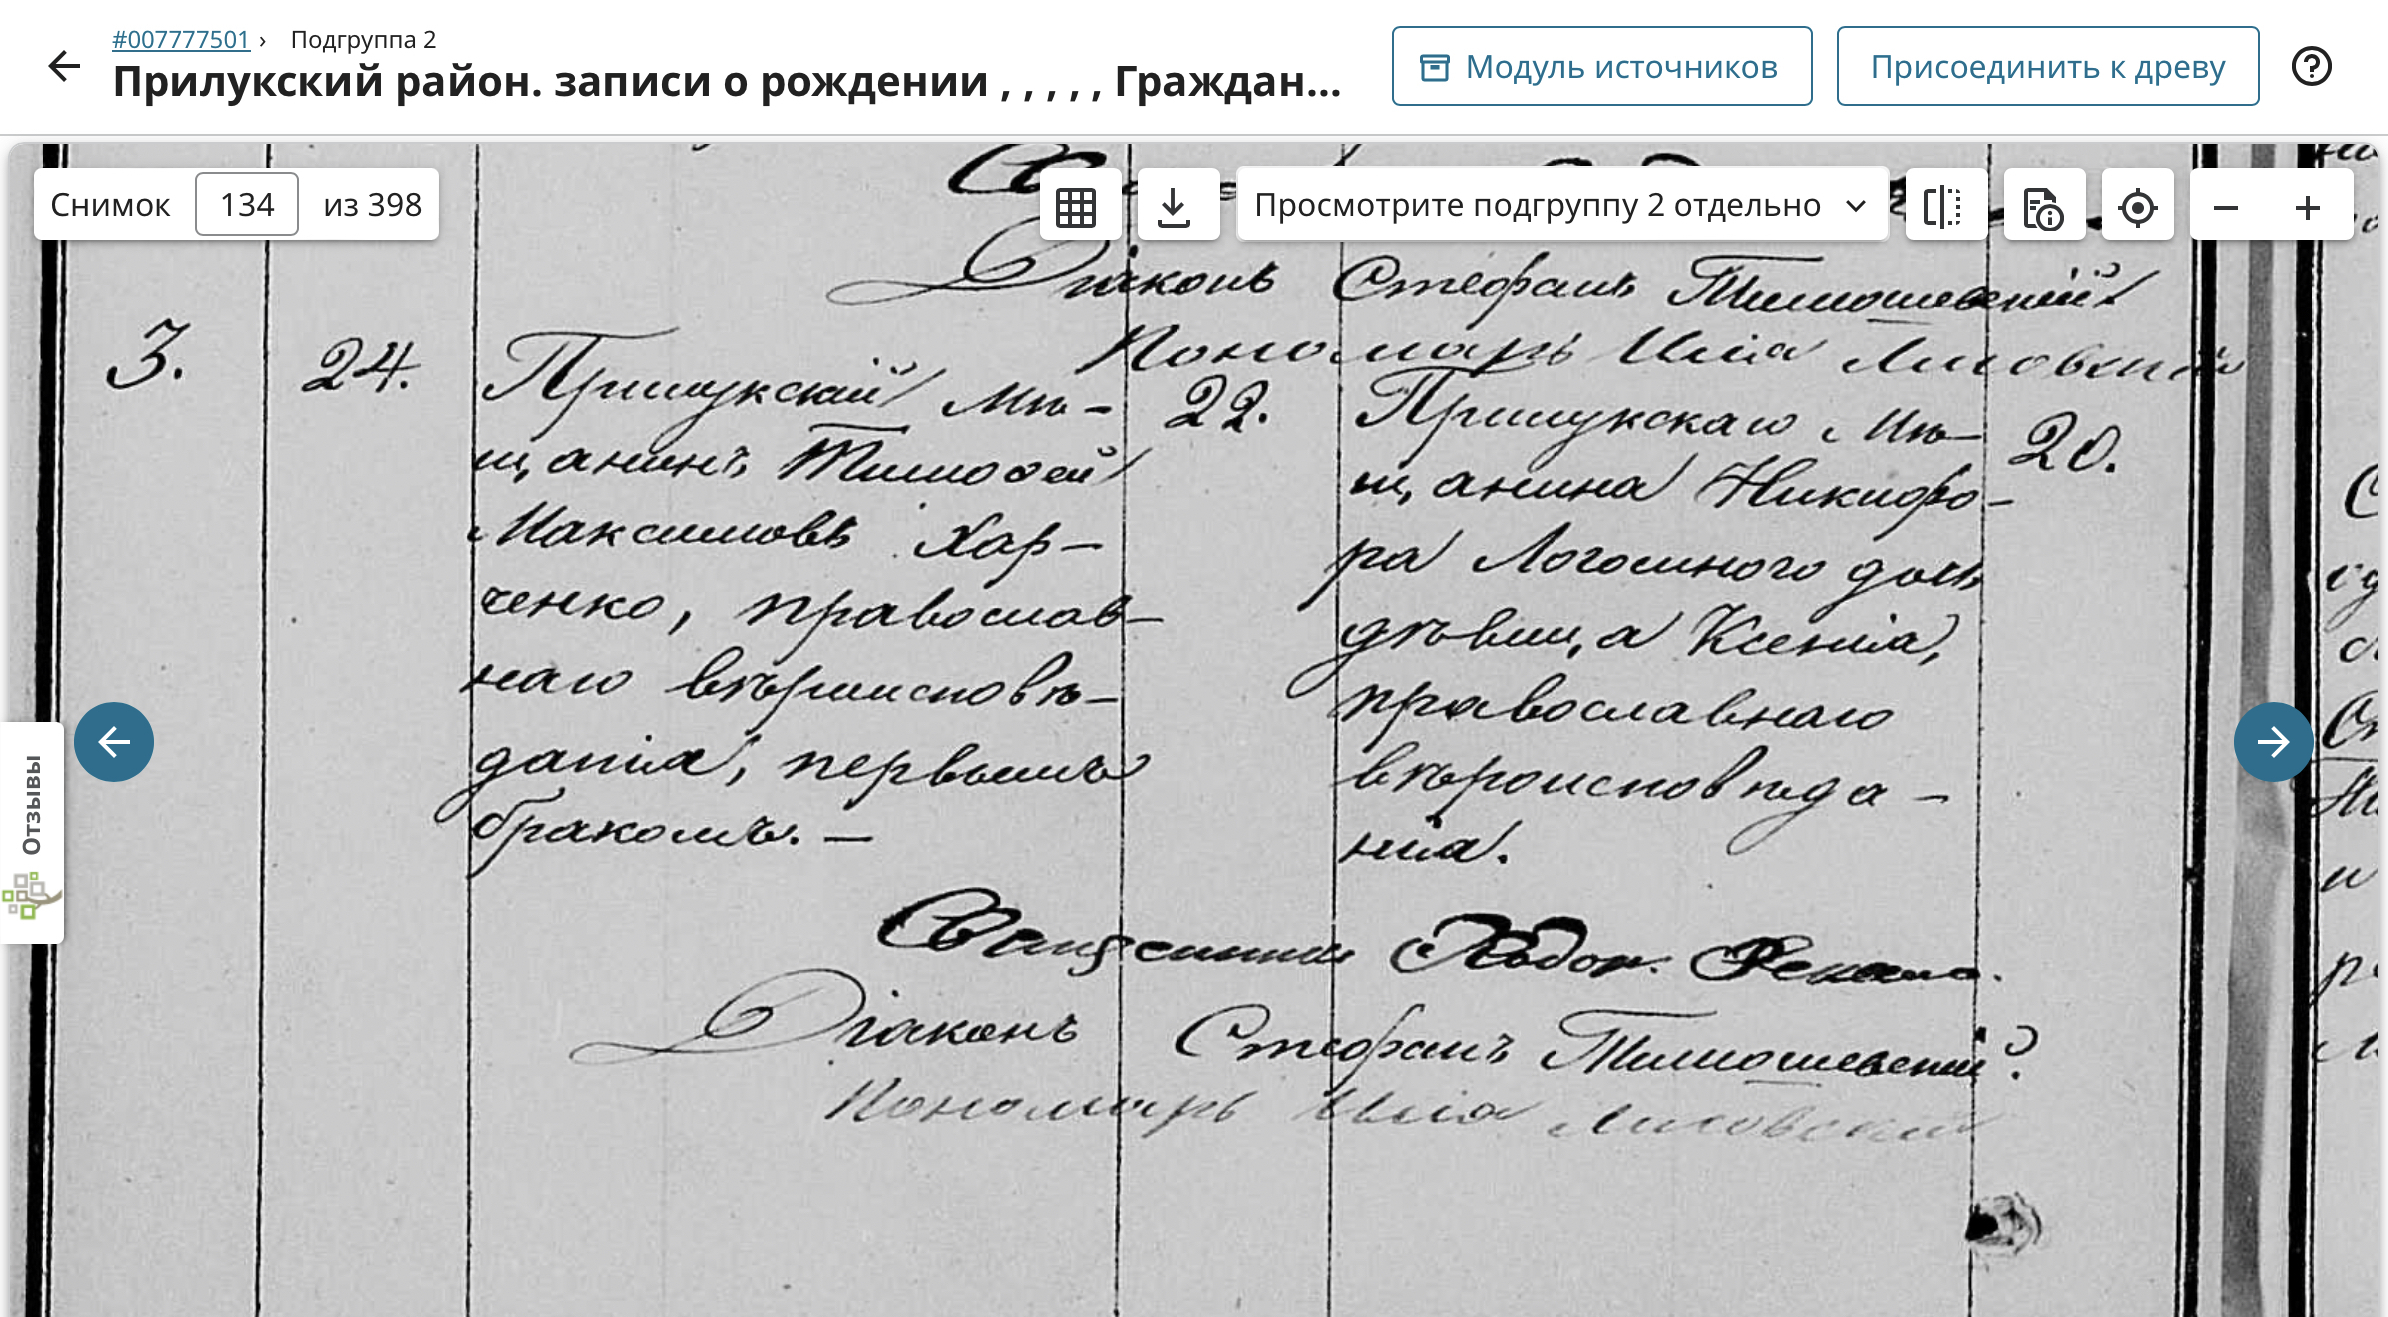 #007777501 › Подгруппа 2
Прилукский район. записи о рождении , , , , , Граждан...
Модуль источников
Присоединить к древу
Снимок 134 из 398
Просмотрите подгруппу 2 отдельно
Діаконъ Стефанъ Тимошевскій
Пономарь Илія Лисовскій
3.
24.
Прилукскій мѣ-
щанинъ Тимоѳей
Максимовъ Хар-
ченко, православ-
наго вѣроисповѣ-
данія, первымъ
бракомъ. —
22.
Прилукскаго мѣ-
щанина Никифо-
ра Логвиного дочь
дѣвица Ксенія,
православнаго
вѣроисповѣда-
нія.
20.
Священникъ
Діаконъ Стефанъ Тимошевскій
Пономарь Илія Лисовскій
Отзывы